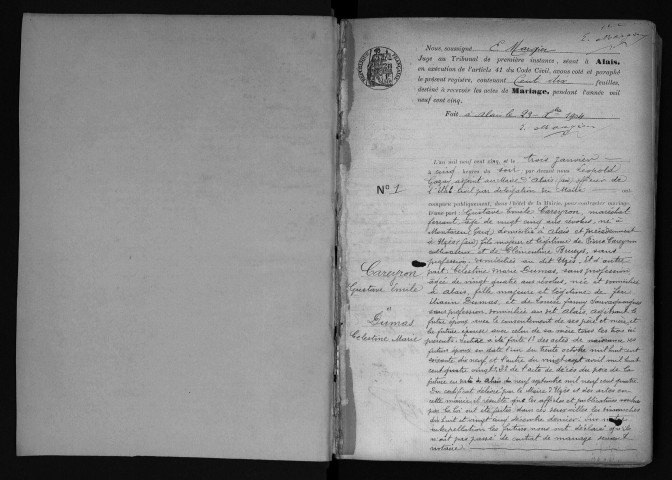 E. Margier
Nous, soussigné E Margier
Juge au Tribunal de première instance, séant à Alais,
en exécution de l'article 41 du Code Civil, avons coté et paraphé
le présent registre, contenant Cent dix feuilles,
destiné à recevoir les actes de Mariage, pendant l'année mil
neuf cent cinq.
Fait à Alais le 23 Xbre 1904
E. Margier
L'an mil neuf cent cinq, et le trois janvier
à cinq heures du soir par devant nous Léopold
adjoint au Maire d'Alais (Gard) officier de
l'état civil par délégation du Maire ont
comparu publiquement, dans l'Hôtel de la Mairie, pour contracter mariage
d'une part: Gustave Emile Careyron, maréchal
ferrant, âgé de vingt cinq ans révolus, né à
Montaren (Gard) domicilié à Alais et précédemment
à Uzès (Gard) fils majeur et légitime de Careyron
cultivateur, et de Clémentine Brueys, sans
profession, domiciliés au dit Uzès. Et d'autre
part: Célestine Marie Dumas, sans profession
âgée de vingt quatre ans révolus, née et domiciliée
à Alais, fille majeure et légitime de feu
Dumas, et de Louise Fanny
sans profession domiciliée au dit Alais,
futur époux avec le consentement de ses père et mère, et
la future épouse avec celui de sa mère tous les trois ici
présents. 1º des actes de naissance des
futurs époux en date l'un du trente octobre mil huit cent
soixante dix neuf et l'autre du vingt sept avril mil huit
cent quatre vingt; 2º de l'acte de décès du père de la
future en date à Alais du neuf septembre mil neuf cent quatre
Du certificat délivré par le Maire d'Uzès et des actes en
cette mairie il résulte que les affiches et publications voulues
par la loi ont été faites dans ces deux villes les dimanches
dix huit et vingt cinq décembre dernier. Sur notre
interpellation les futurs nous ont déclaré qu'ils
n'ont pas passé de contrat de mariage devant
notaire.
Nº 1
Careyron
Gustave Emile
et
Dumas
Célestine Marie